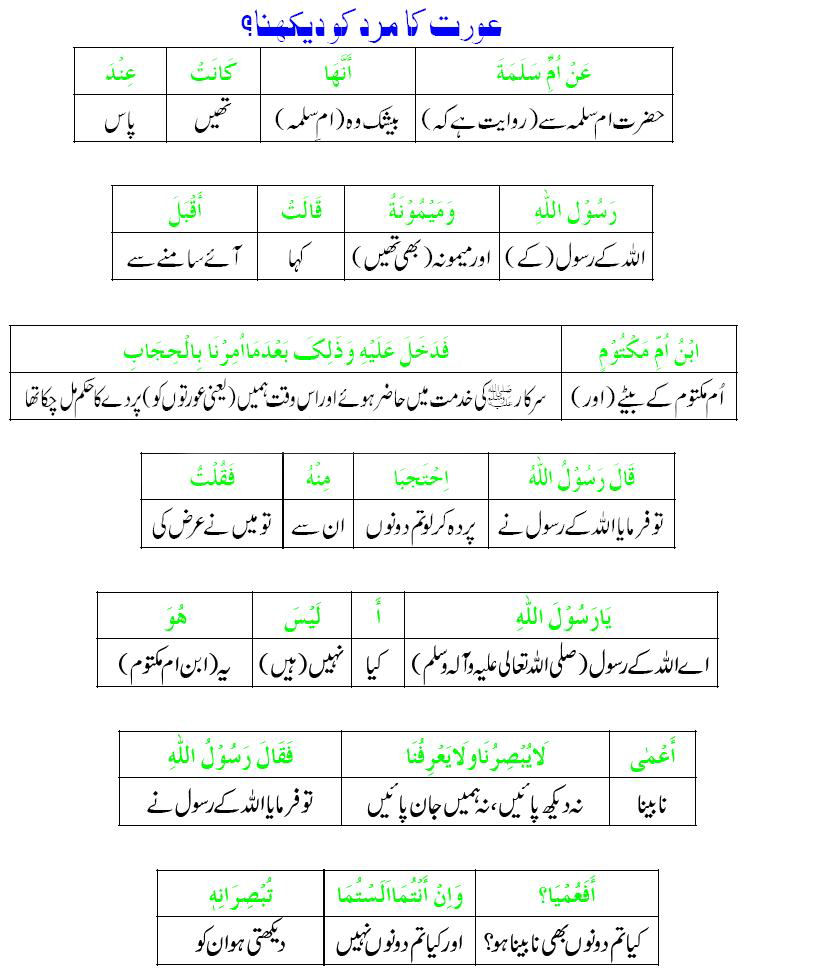 عورت کا مرد کو دیکھنا؟
عَنْ اُمِّ سَلَمَةَ أَنَّهَا كَانَتْ عِنْدَ
حضرت ام سلمہ سے (روایت ہے کہ) بیشک وہ (ام سلمہ) تھیں پاس
رَسُوْلِ اللّٰهِ وَمَيْمُوْنَةُ قَالَتْ أَقْبَلَ
اللہ کے رسول (کے) اور میمونہ (بھی تھیں) کہا آئے سامنے سے
ابْنُ اُمِّ مَكْتُوْمٍ فَدَخَلَ عَلَيْهِ وَذَلِکَ بَعْدَمَا اُمِرْنَا بِالْحِجَابِ
اُم مکتوم کے بیٹے (اور) سرکار ﷺ کی خدمت میں حاضر ہوئے اور اس وقت ہمیں (یعنی عورتوں کو) پردے کا حکم مل چکا تھا
قَالَ رَسُوْلُ اللّٰهُ اِحْتَجِبَا مِنْهُ فَقُلْتُ
تو فرمایا اللہ کے رسول نے پردہ کرلو تم دونوں ان سے تو میں نے عرض کی
يَارَسُوْلَ اللّٰهِ أَ لَيْسَ هُوَ
اے اللہ کے رسول (صلی اللہ تعالی علیہ وآلہ وسلم) کیا نہیں (ہیں) یہ (ابن ام مکتوم)
أَعْمٰى لَايُبْصِرُنَا وَلَايَعْرِفُنَا فَقَالَ رَسُوْلُ اللّٰهِ
نابینا نہ دیکھ پائیں، نہ ہمیں جان پائیں تو فرمایا اللہ کے رسول نے
أَفَعُمْيَا؟ وَاِنْ أَنْتُمَا اَلَسْتُمَا تُبْصِرَانِهٖ
کیا تم دونوں بھی نابینا ہو؟ اور کیا تم دونوں نہیں دیکھتی ہو ان کو